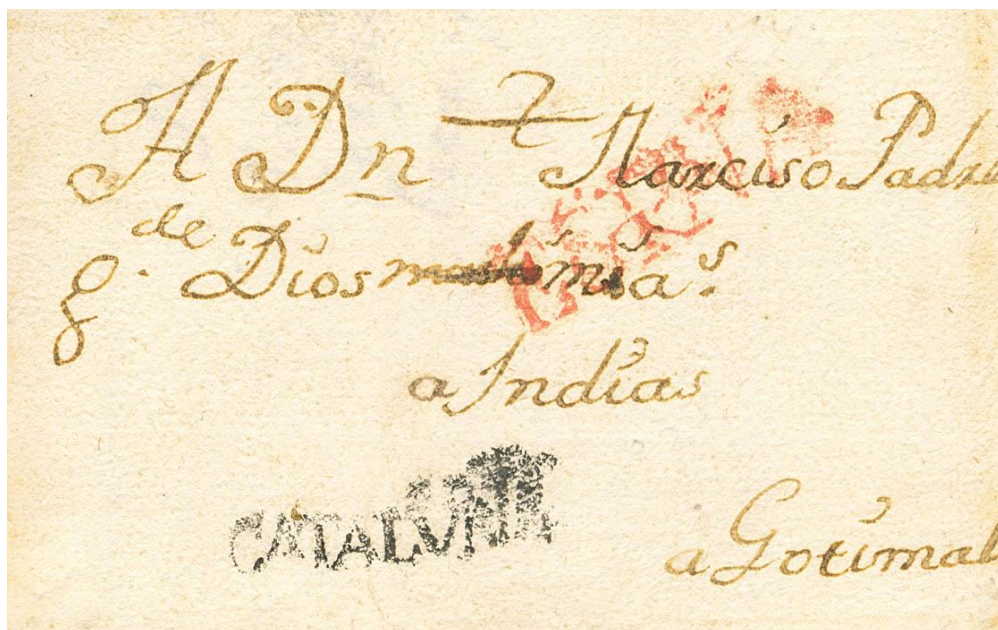 A Dn Narciso Padr
de
g. Dios ms as.
a Indias
CATALUÑA
a Gotimal